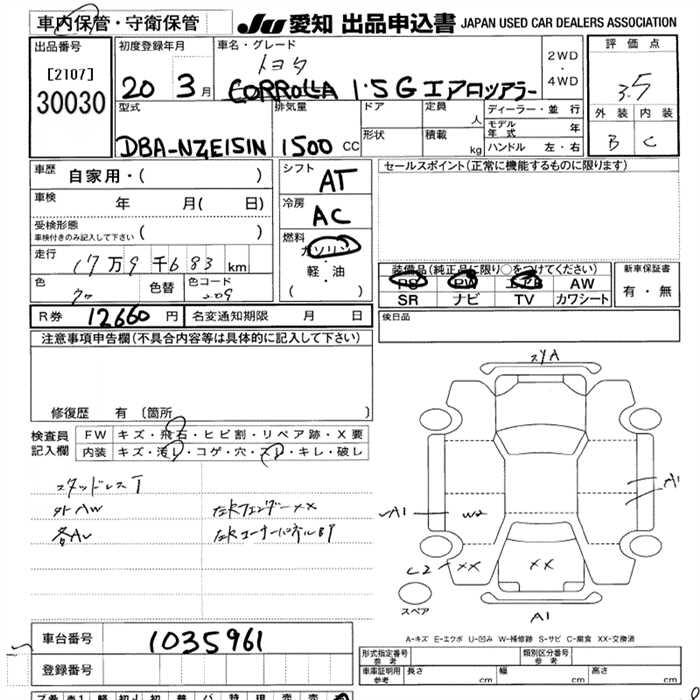 車内保管・守衛保管 Ju 愛知 出品申込書 JAPAN USED CAR DEALERS ASSOCIATION
出品番号 初度登録年月 車名・グレード 2WD ・ 4WD 評価点
[2107] トヨタ
30030 20 3月 CORROLLA 1.5 G エアロツアラー 3.5
型式 排気量 ドア 定員 人 ディーラー・並行 外装 内装
モデル年式 年
DBA-NZE151N 1500 CC 形状 積載 kg ハンドル 左・右 B C
車歴 自家用・( ) シフト AT セールスポイント(正常に機能するものに限ります)
車検 年 月( 日) 冷房 AC
受検形態 車検付きのみ記入して下さい ( ) 燃料 ガソリン
走行 17万9千683km 軽・油 装備品(純正品に限り○をつけてください) 新車保証書
色 クロ 色替 色コード 209 ( ) PS PW エアB AW 有・無
SR ナビ TV カワシート
R券 12660円 名変通知期限 月 日 候日品
注意事項申告欄(不具合内容等は具体的に記入して下さい)
スリA
修復歴 有 〔箇所 〕
検査員記入欄 FW キズ・飛石・ヒビ割・リペア跡・X要
内装 キズ・汚レ・コゲ・穴・スレ・キレ・破レ
スタッドレスT A1
外AW 左Rフェンダー××
A1 W2
各AU 左Rコーナーパネル
C2 ×× ××
スペア A1
A-キズ E-エクボ U-凹み W-補修跡 S-サビ C-腐食 XX-交換済
車台番号 1035961
形式指定番号 参考 類別区分番号 参考
登録番号 車庫証明用 参考 長さ cm 幅 cm 高さ cm